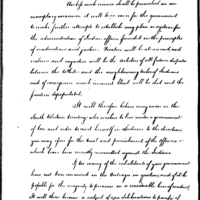 exemplary manner it will be in vain for the government
to make further attempts to establish any plan or system for
the administration of Indian affairs founded on the principles
of moderation and justice. Treaties will be at an end and
violence and injustice will be the arbiters of all future disputes
between the Whites and the neighbouring tribes of Indians
and of consequence much innocent blood will be shed and the
frontiers depopulated.
It will therefore behove every man in the
South Western territory who wishes to live under a government
of law and order to exert himself in obedience to the directions
you may give for the trial and punishment of the
which have been recently committed against the Indians
If so many of the inhabitants of your government
have not been concerned in the outrages in question
possible for the majority to in a reasonable line of conduct,
It will then become a subject of your deliberations to